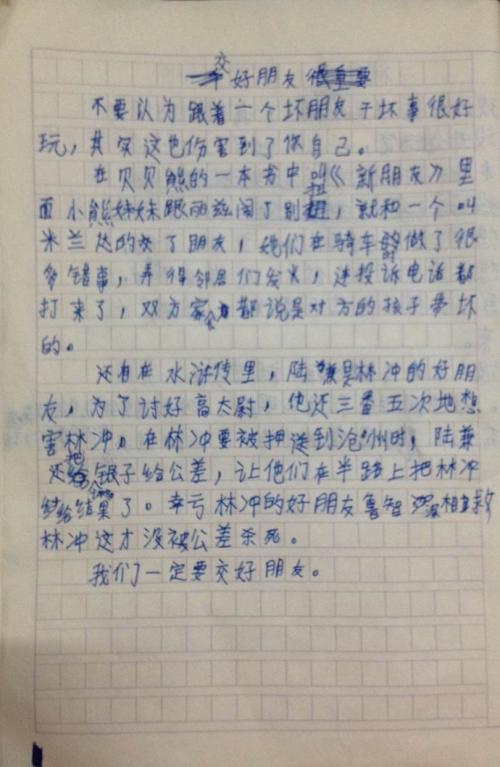 交好朋友很重要
不要认为跟着一个坏朋友干坏事很好
玩，其实这也伤害到了你自己。
在贝贝熊的一本书中叫《新朋友》里
面小熊妹妹跟丽兹闹了别扭，就和一个叫
米兰达的交了朋友，她们在骑车时做了很
多错事，弄得邻居们发火，连投诉电话都
打来了，双方家人都说是对方的孩子带坏
的。
还有在水浒传里，陆谦是林冲的好朋
友，为了讨好高太尉，他还三番五次地想
害林冲。在林冲要被押送到沧州时，陆兼
还把银子给公差，让他们在半路上把林冲
给结果了。幸亏林冲的好朋友鲁智深相救
林冲这才没被公差杀死。
我们一定要交好朋友。